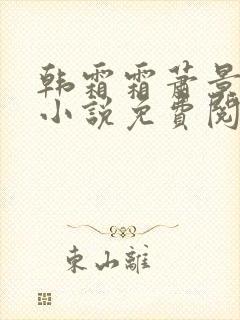 韩霜霜萧景
小说免費閱
東山離